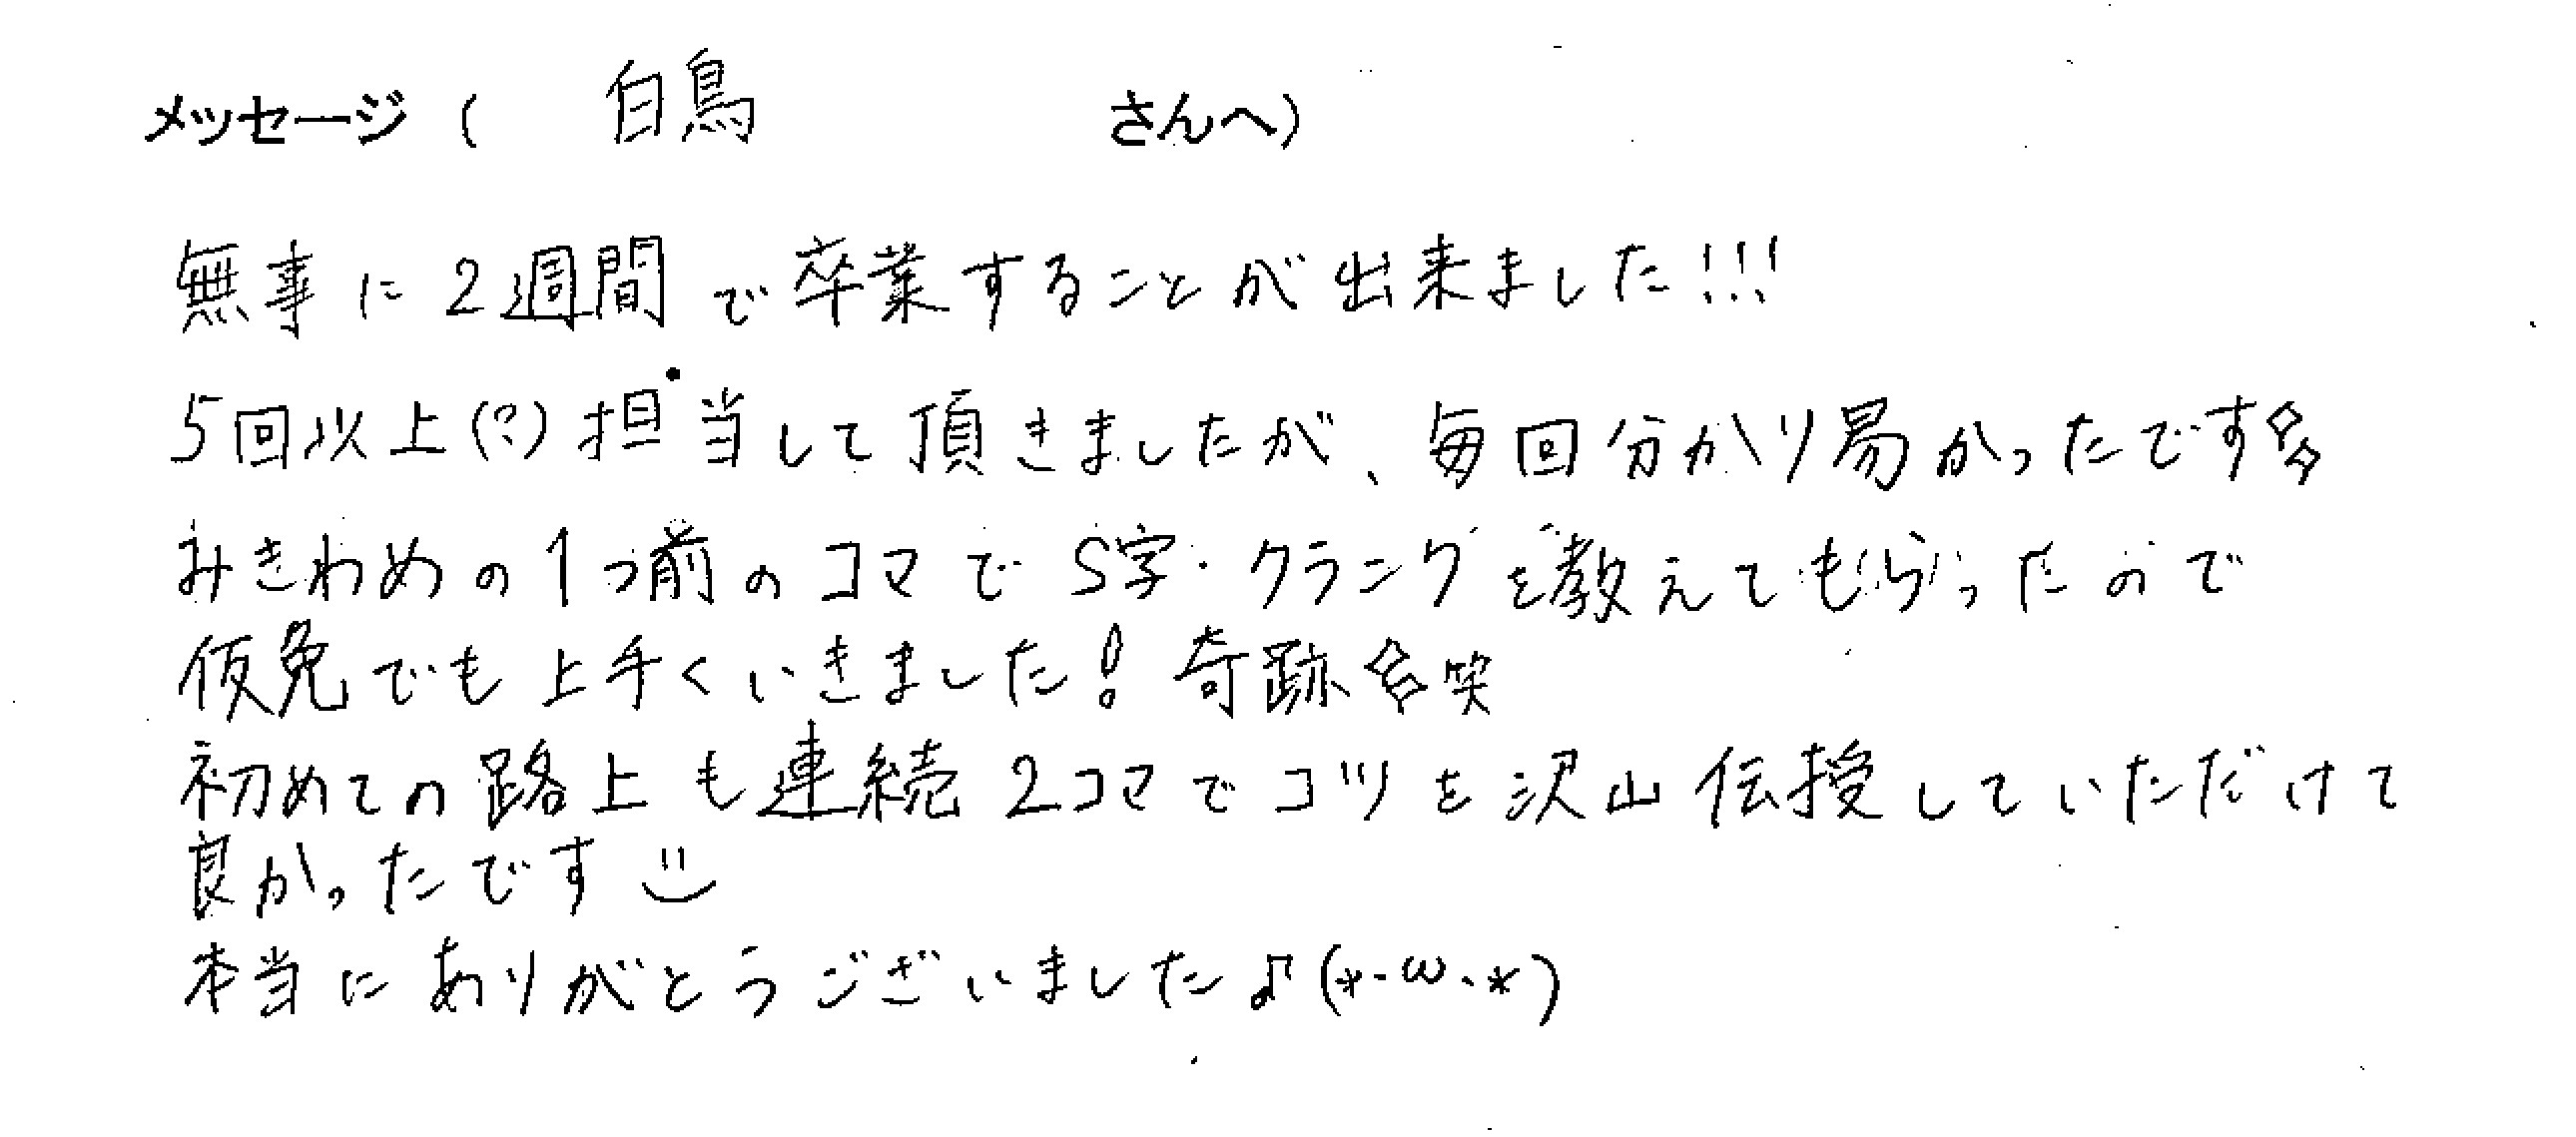 メッセージ ( 白鳥 さんへ)
無事に2週間で卒業することが出来ました!!!
5回以上(?)担当して頂きましたが、毎回分かり易かったです
みきわめの1つ前のコマでS字・クランクを教えてもらったので
仮免でも上手くいきました!奇跡 笑
初めての路上も連続2コマでコツを沢山伝授していただけて
良かったです
本当にありがとうございました♪(*・ω・*)